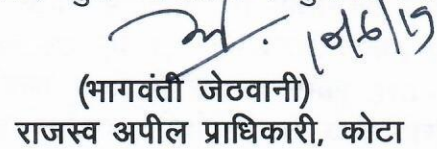 10/6/19
(भागवंती जेठवानी)
राजस्व अपील प्राधिकारी, कोटा